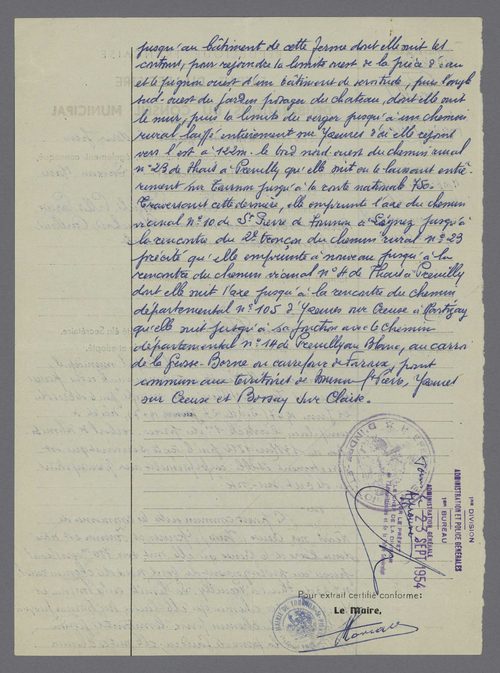 jusqu'au bâtiment de cette ferme dont elle suit les
contours, pour rejoindre la limite ouest de la pièce d'eau
et le pignon ouest d'un bâtiment de servitude, puis l'angle
sud ouest du jardin potager du chateau, dont elle suit
le mur, puis la limite du verger jusqu'à un chemin
rural laissé entièrement sur Yzeures d'où elle rejoint
vers l'est à 122m. le bord nord ouest du chemin rural
n° 23 de Thais à Preuilly qu'elle suit en le laissant entiè-
rement sur Tournon jusqu'à la route nationale 750.
Traversant cette dernière, elle emprunte l'axe du chemin
vicinal n° 10 de St Pierre de Tournon à jusqu'à
la rencontre du 2e tronçon du chemin rural n° 23
précité qu'elle emprunte à nouveau jusqu'à la
rencontre du chemin vicinal n° 4 de Thais à Preuilly
dont elle suit l'axe jusqu'à la rencontre du chemin
départemental n° 105 d'Yzeures sur Creuse à
qu'elle suit jusqu'à sa jonction avec le chemin
départemental n° 14 de Preuilly au Blanc, au carroi
de la Grosse-Borne ou carrefour de point
commun aux territoires de Tournon St Pierre, Yzeures
sur Creuse et Bossay sur Claise.
1re DIVISION
ADMINISTRATION ET POLICE GÉNÉRALES
1er BUREAU
ADMINISTRATION GÉNÉRALE
23 SEPT 1954
Pour extrait certifié conforme:
Le Maire,